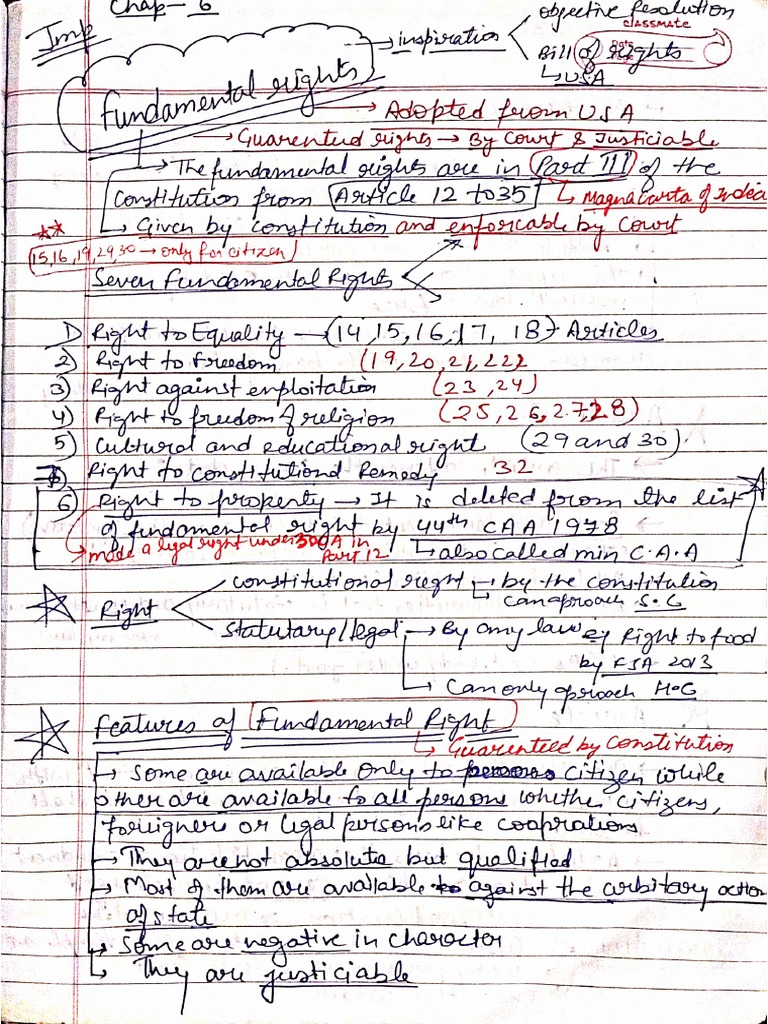 Chap- 6
Imp
→ inspiration
objective Resolution
classmate
Bill of rights
↳ USA
Fundamental rights
→ Adopted from USA
→ Guarented rights → By Court & Justiciable
→ The fundamental rights are in Part III of the
Constitution from Article 12 to 35
↳ Magna Carta of India
↳ Given by constitution and enforcable by Court
**
15,16,19,29,30 → only for citizen
Seven Fundamental Rights
1) Right to Equality — (14,15,16,17, 18) - Articles
2) Right to Freedom (19,20,21,22)
3) Right against enploitation (23,24)
4) Right to freedom of religion (25,26,27,28)
5) Cultural and educational right (29 and 30)
Right to constitutional Remedy 32
6) Right to property → It is deleted from the list
of fundamental right by 44th CAA 1978
→ made a legal right under 300A in
Part 12
↳ also called mini C.A.A
Right
constitutional right → by the constitution
↳ can aproach S.C
Statutary/legal → By any law eg Right to food
by FSA-2013
↳ Can only aproach H.C
Features of Fundamental Right
↳ Guarenteed by Constitution
→ Some are available only to citizen while
other are available to all persons whether citizens,
foreigners or legal persons like cooprations
→ They are not absolute but qualified
→ Most of them are available against the arbitary action
of state
→ Some are negative in character
↳ They are justiciable